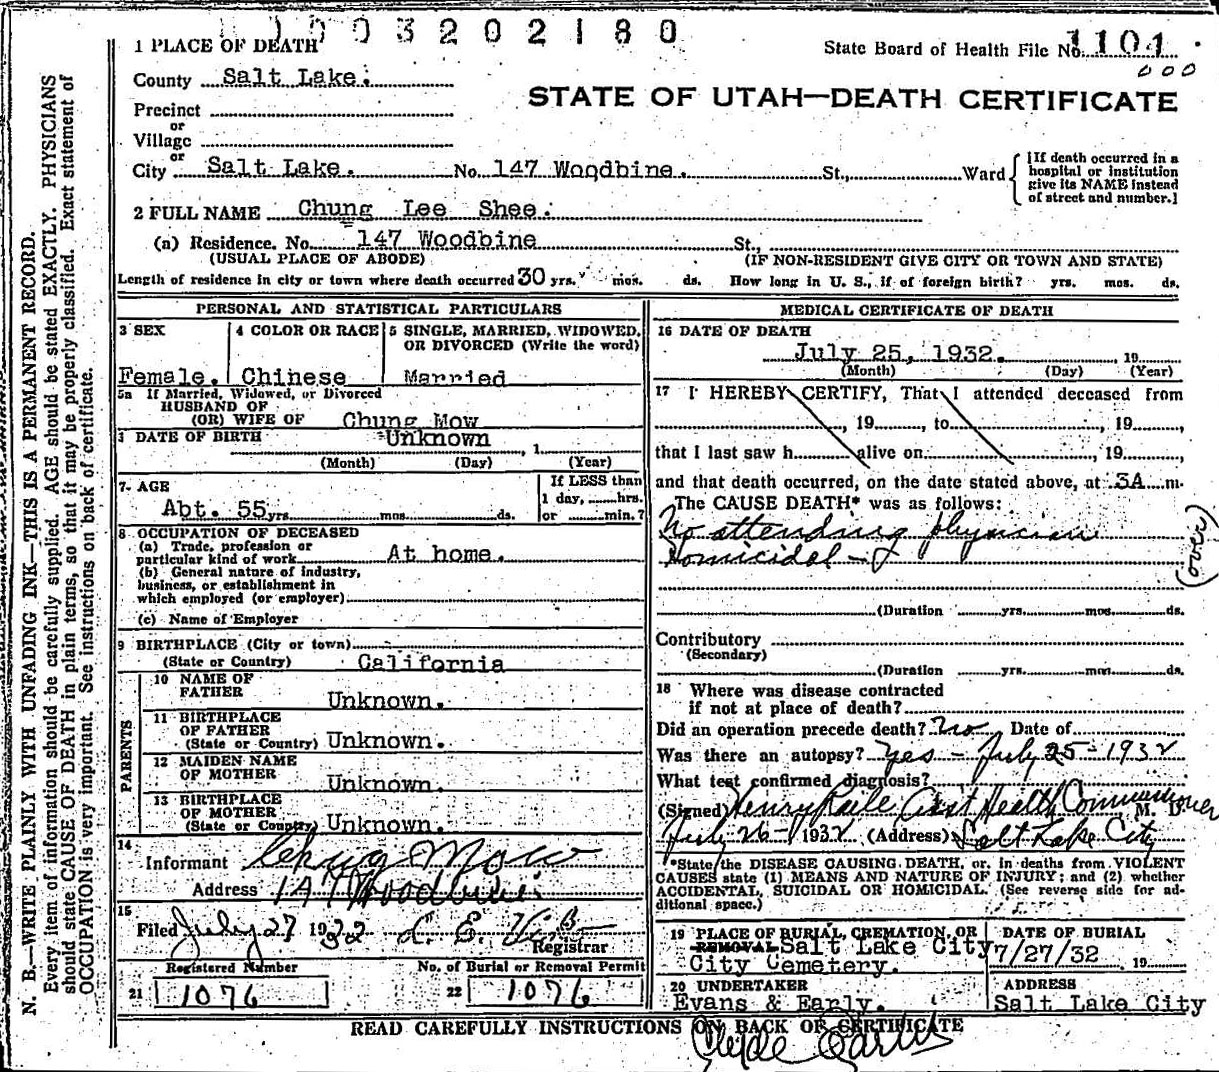 1003202180
1 PLACE OF DEATH
State Board of Health File No. 1101
000
County Salt Lake.
STATE OF UTAH—DEATH CERTIFICATE
Precinct
or
Village
or
City Salt Lake. No. 147 Woodbine. St., Ward
[If death occurred in a
hospital or institution
give its NAME instead
of street and number.]
2 FULL NAME Chung Lee Shee.
(a) Residence. No. 147 Woodbine St.,
(USUAL PLACE OF ABODE) (IF NON-RESIDENT GIVE CITY OR TOWN AND STATE)
Length of residence in city or town where death occurred 30 yrs. mos. ds. How long in U. S., if of foreign birth? yrs. mos. ds.
PERSONAL AND STATISTICAL PARTICULARS
3 SEX
Female.
4 COLOR OR RACE
Chinese
5 SINGLE, MARRIED, WIDOWED,
OR DIVORCED (Write the word)
Married
5a If Married, Widowed, or Divorced
HUSBAND OF
(OR) WIFE OF Chung Mow
DATE OF BIRTH Unknown , 1
(Month) (Day) (Year)
7 AGE
Abt. 55 yrs. mos. ds.
If LESS than
1 day, hrs.
or min.?
8 OCCUPATION OF DECEASED
(a) Trade, profession or
particular kind of work At home.
(b) General nature of industry,
business, or establishment in
which employed (or employer)
(c) Name of Employer
9 BIRTHPLACE (City or town)
(State or Country) California
PARENTS
10 NAME OF
FATHER Unknown.
11 BIRTHPLACE
OF FATHER
(State or Country) Unknown.
12 MAIDEN NAME
OF MOTHER Unknown.
13 BIRTHPLACE
OF MOTHER
(State or Country) Unknown.
14
Informant Chung Mow
Address 147 Woodbine
15
Filed July 27 1932
Registrar
Registered Number No. of Burial or Removal Permit
21 1076 22 1076
MEDICAL CERTIFICATE OF DEATH
16 DATE OF DEATH
July 25, 1932. , 19
(Month) (Day) (Year)
17 I HEREBY CERTIFY, That I attended deceased from
, 19 , to , 19 ,
that I last saw h alive on , 19 ,
and that death occurred, on the date stated above, at 3A m.
The CAUSE DEATH* was as follows:
No attending physician
Homicidal —
(over)
(Duration yrs. mos. ds.
Contributory
(Secondary)
(Duration yrs. mos. ds.
18 Where was disease contracted
if not at place of death?
Did an operation precede death? No Date of
Was there an autopsy? Yes – July 25 – 1932
What test confirmed diagnosis?
(Signed) Henry Raile Asst Health Commissioner M. D
July 26 – 1932 (Address) Salt Lake City
*State the DISEASE CAUSING DEATH, or, in deaths from VIOLENT
CAUSES state (1) MEANS AND NATURE OF INJURY; and (2) whether
ACCIDENTAL, SUICIDAL OR HOMICIDAL. (See reverse side for ad-
ditional space.)
19 PLACE OF BURIAL, CREMATION, OR
REMOVAL Salt Lake City
City Cemetery.
DATE OF BURIAL
7/27/32 , 19
20 UNDERTAKER
Evans & Early.
ADDRESS
Salt Lake City
READ CAREFULLY INSTRUCTIONS ON BACK OF CERTIFICATE
Clyde
N. B.—WRITE PLAINLY WITH UNFADING INK—THIS IS A PERMANENT RECORD.
Every item of information should be carefully supplied. AGE should be stated EXACTLY. PHYSICIANS
should state CAUSE OF DEATH in plain terms, so that it may be properly classified. Exact statement of
OCCUPATION is very important. See instructions on back of certificate.